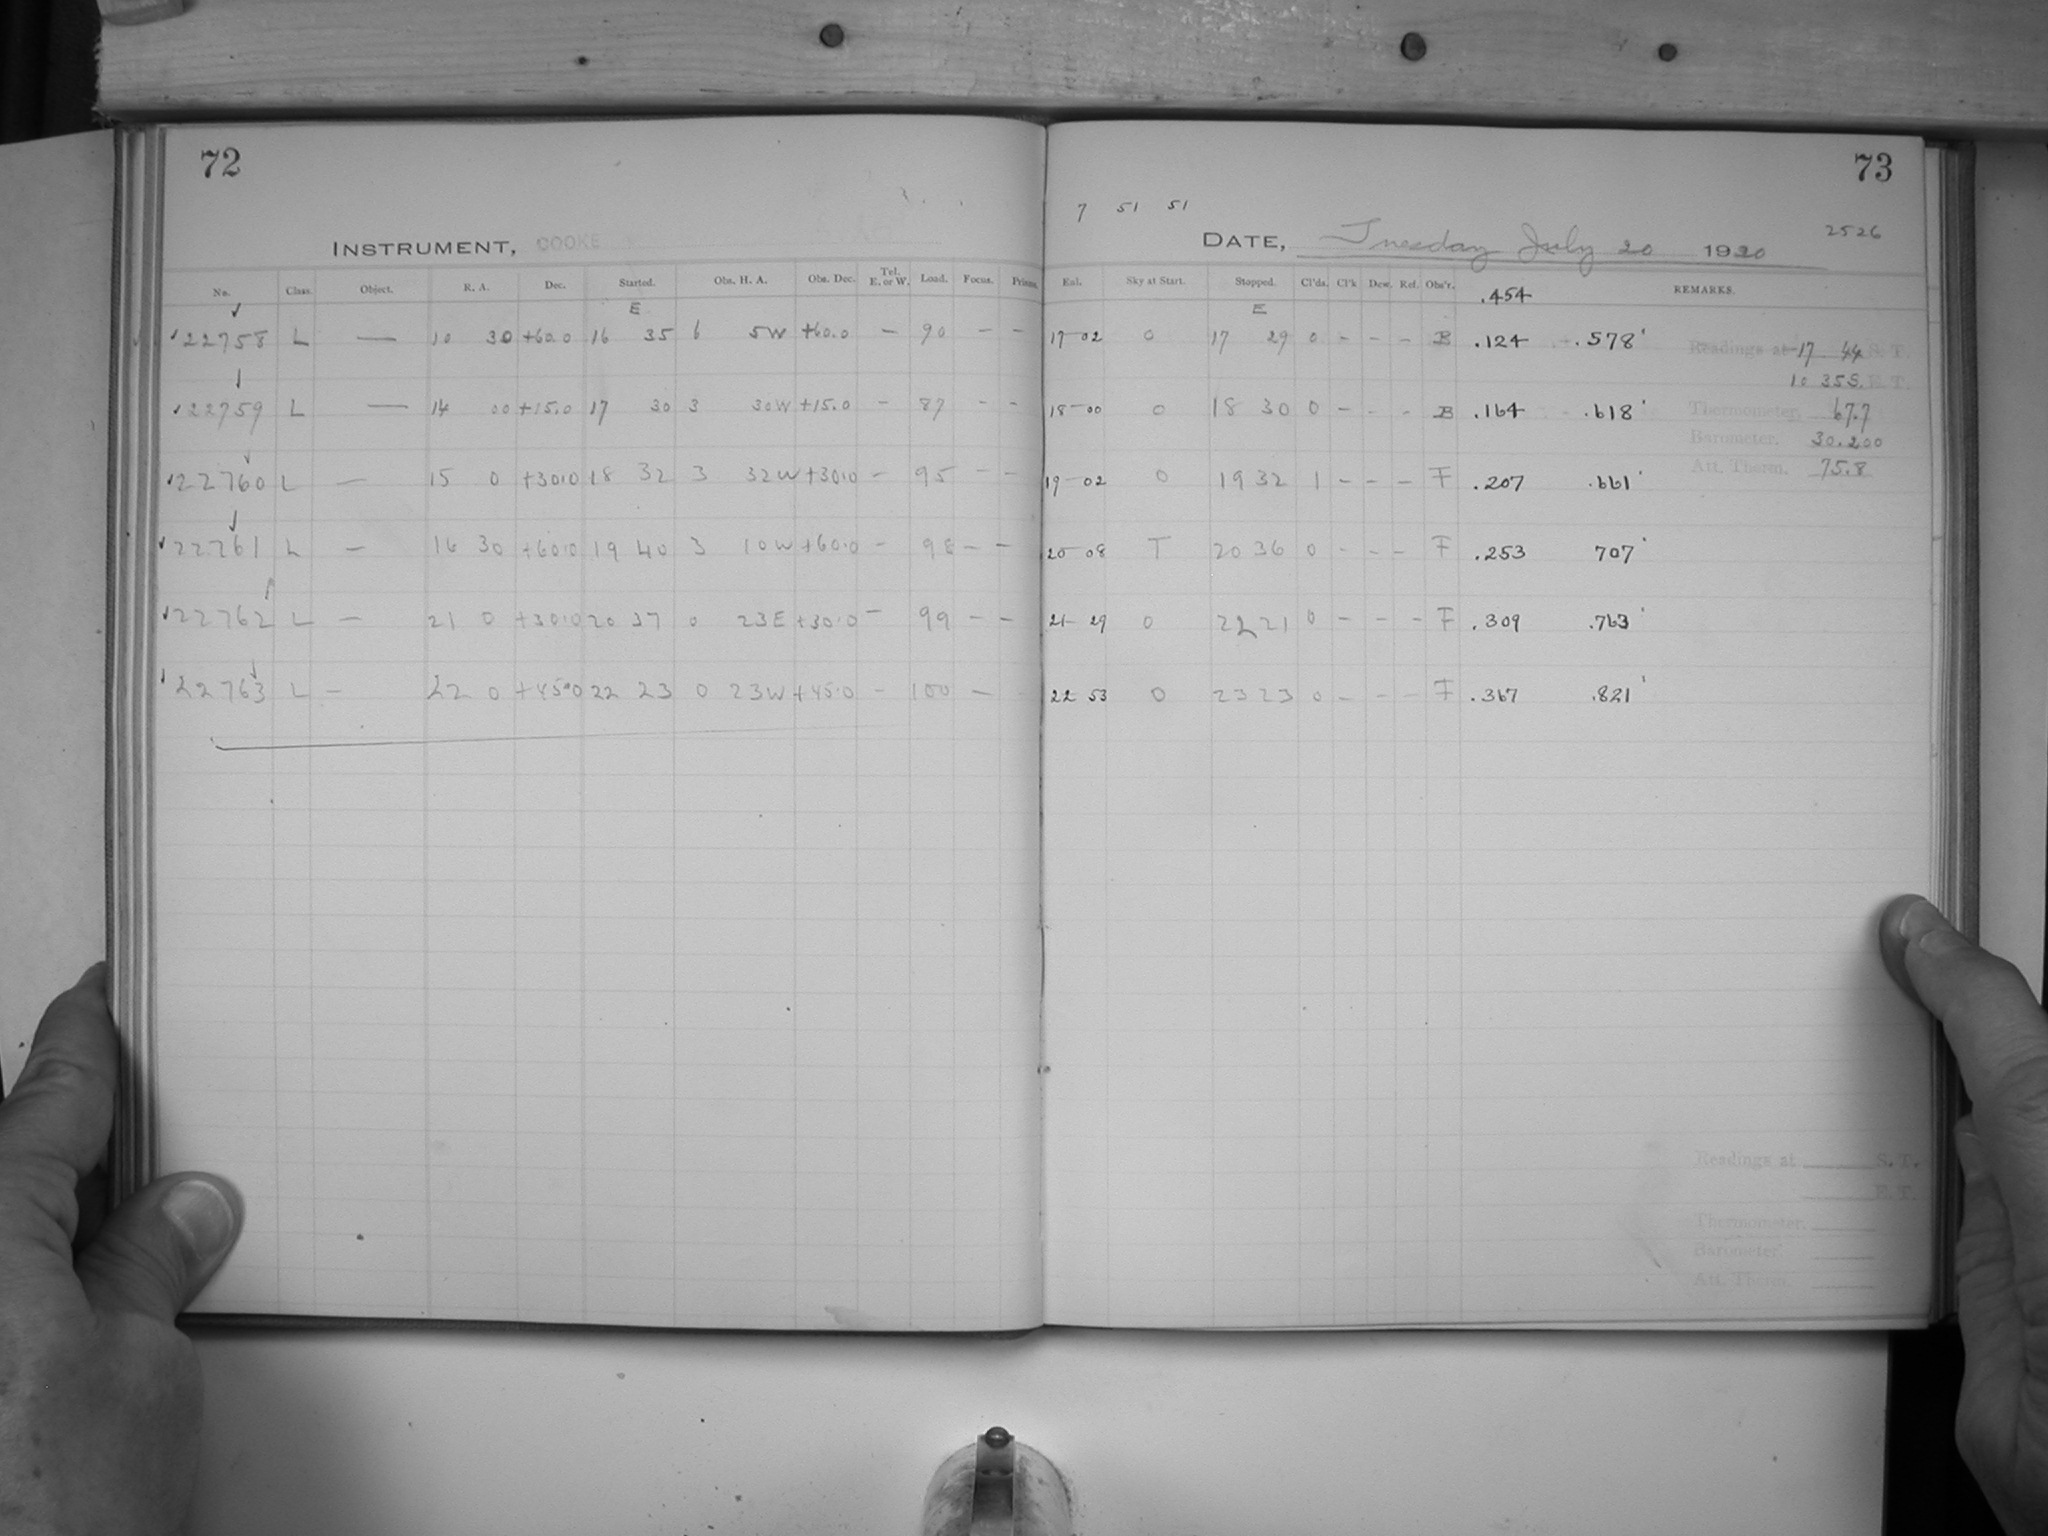 72
INSTRUMENT, COOKE
No. Class. Object. R. A. Dec. Started. Obs. H. A. Obs. Dec. Tel. E. or W. Load. Focus. Prisms.
E
22758 L — 10 30 +60.0 16 35 6 5W +60.0 — 90 — —
22759 L — 14 00 +15.0 17 30 3 30W +15.0 - 87 - -
22760 L — 15 0 +30.0 18 32 3 32W +30.0 - 95 - -
22761 L — 16 30 +60.0 19 40 3 10W +60.0 - 98 - -
22762 L — 21 0 +30.0 20 37 0 23E +30.0 - 99 - -
22763 L — 22 0 +45.0 22 23 0 23W +45.0 - 100 —
73
7 51 51
DATE, Tuesday July 20 1920 2526
Eal. Sky at Start. Stopped. Cl'ds. Cl'k Dew. Ref. Obs'r. .454 REMARKS.
E
17-02 0 17 29 0 - - - B .124 .578
Readings at 17 44 S. T.
10 35 S. E. T.
18-00 0 18 30 0 - - - B .164 .618
Thermometer. 67.7
Barometer. 30.200
Att. Therm. 75.8
19-02 0 19 32 1 - - - F .207 .661
20-08 T 20 36 0 - - - F .253 707
21-29 0 22 21 0 - - - F .309 .763
22 53 0 23 23 0 - - - F .367 .821
Readings at S. T.
E. T.
Thermometer.
Barometer.
Att. Therm.